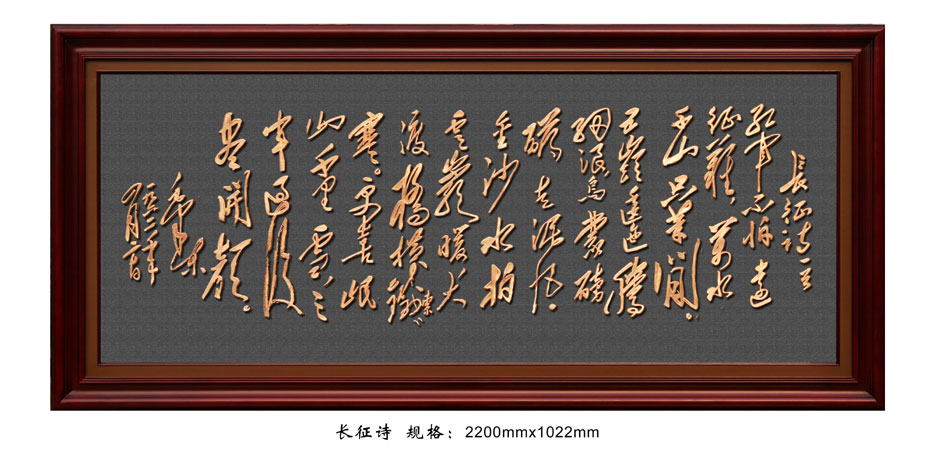 長征詩一首
紅軍不怕遠
征難,萬水
千山只等閒。
五嶺逶迤騰
細浪烏蒙磅
礴走泥丸。
金沙水拍
雲崖暖大
渡橋橫鐵索
寒。更喜岷
山千里雪三
軍過後
盡開顏。
毛澤東
一九六二年
长征诗 规格:2200mmx1022mm